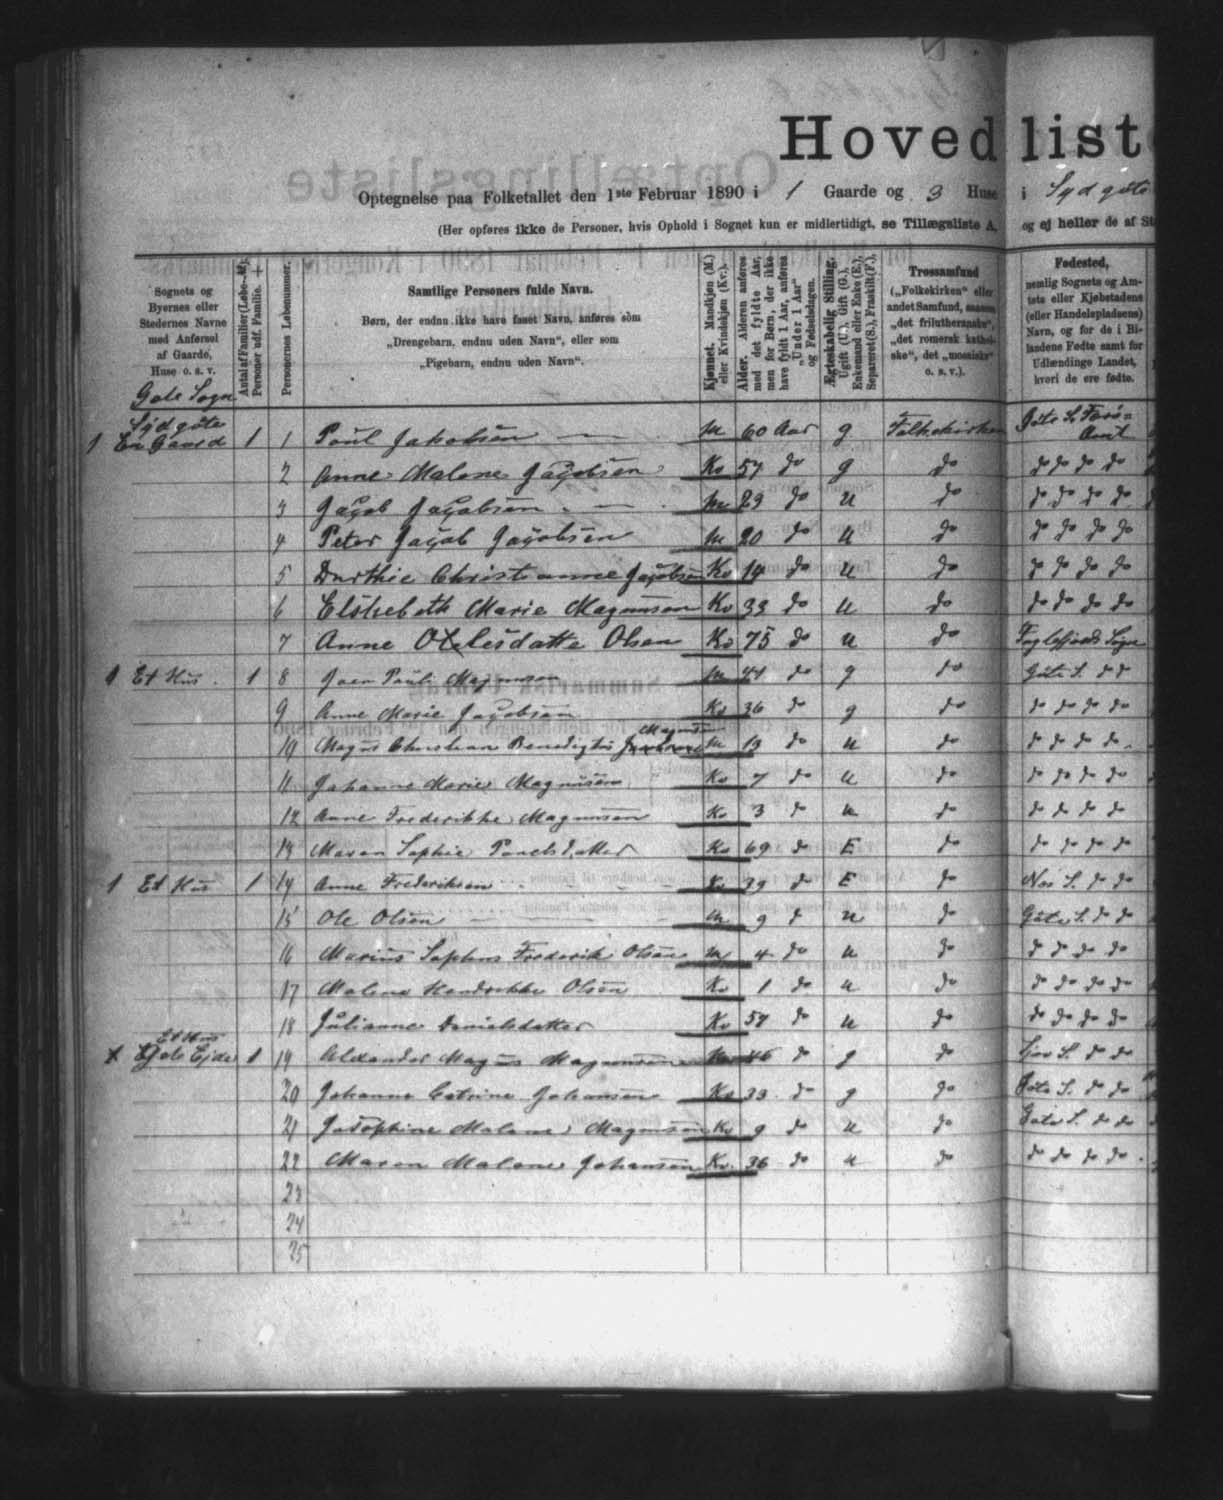 Hovedliste
Optegnelse paa Folketallet den 1ste Februar 1890 i 1 Gaarde og 3 Huse i Sydgöte
(Her opføres ikke de Personer, hvis Ophold i Sognet kun er midlertidigt, se Tillægsliste A, og ej heller de af St
Sognets og Byernes eller Stedernes Navne med Anførsel af Gaarde, Huse o. s. v.
Antal af Familier (Løbe-№). Personer udf. Familie. +
Personernes Løbenummer.
Samtlige Personers fulde Navn.
Børn, der endnu ikke have faaet Navn, anføres som „Drengebarn, endnu uden Navn“, eller som „Pigebarn, endnu uden Navn“.
Kjønnet. Mandkjøn (M.) eller Kvindekjøn (Kv.).
Alder. Alderen anføres med det fyldte Aar, men for Børn, der ikke have fyldt 1 Aar, anføres „Under 1 Aar“ og Fødselsdagen.
Ægteskabelig Stilling. Ugift (U.), Gift (G.), Enkemand eller Enke (E.), Separeret (S.), Fraskilt (F.).
Trossamfund („Folkekirken“ eller andet Samfund, saasom „det frilutheranske“, „det romersk katholske“, det „mosaiske“ o. s. v.).
Fødested, nemlig Sognets og Amtets eller Kjøbstadens (eller Handelspladsens) Navn, og for de i Bilandene Fødte samt for Udlændinge Landet, hvori de ere fødte.
Göte Sogn
Sydgöte
1 En Gaard 1 1 Poul Jakobsen M 60 Aar g Folkekirken Göte S. Færö= Amt
2 Anne Malene Jacobsen Kv 57 do g do do do do do
3 Jacob Jacobsen M 29 do u do do do do do
4 Peter Jacob Jacobsen M 20 do u do do do do do
5 Dorthie Christianne Jacobsen Kv 14 do u do do do do do
6 Elsebeth Marie Magnussen Kv 33 do u do do do do do
7 Anne Olsen Kv 75 do u do Fuglefjords Sogn
1 Et Hus. 1 8 Joen Poul Magnussen M 41 do g do Göte S. do do
9 Anne Marie Jacobsen Kv 36 do g do do do do do
Magnussen
10 Magnus Christian Benedigtus M 13 do u do do do do do
11 Johanne Marie Magnussen Kv 7 do u do do do do do
12 Anne Frederikke Magnussen Kv 3 do u do do do do do
13 Maren Sophie Poulsdatter Kv 69 do E do do do do do
1 Et Hus 1 14 Anne Frederiksen Kv 39 do E do Nes S. do do
15 Ole Olsen M 9 d u do Göte S. do do
16 Marius Sophus Frederik Olsen M 4 do u do do do do do
17 Malene Hendrikke Olsen Kv 1 do u do do do do do
18 Julianne Danielsdatter Kv 57 do u do do do do do
Et Hus
1 19 Alexander Magnus Magnussen 46 do g do S. do do
20 Johanne Catrine Johansen Kv 33 do g do Göte S. do do
21 Josephine Malene Magnussen Kv 9 do u do Göte S. do do
22 Maren Malene Johansen Kv. 36 do u do do do do do
23
24
25